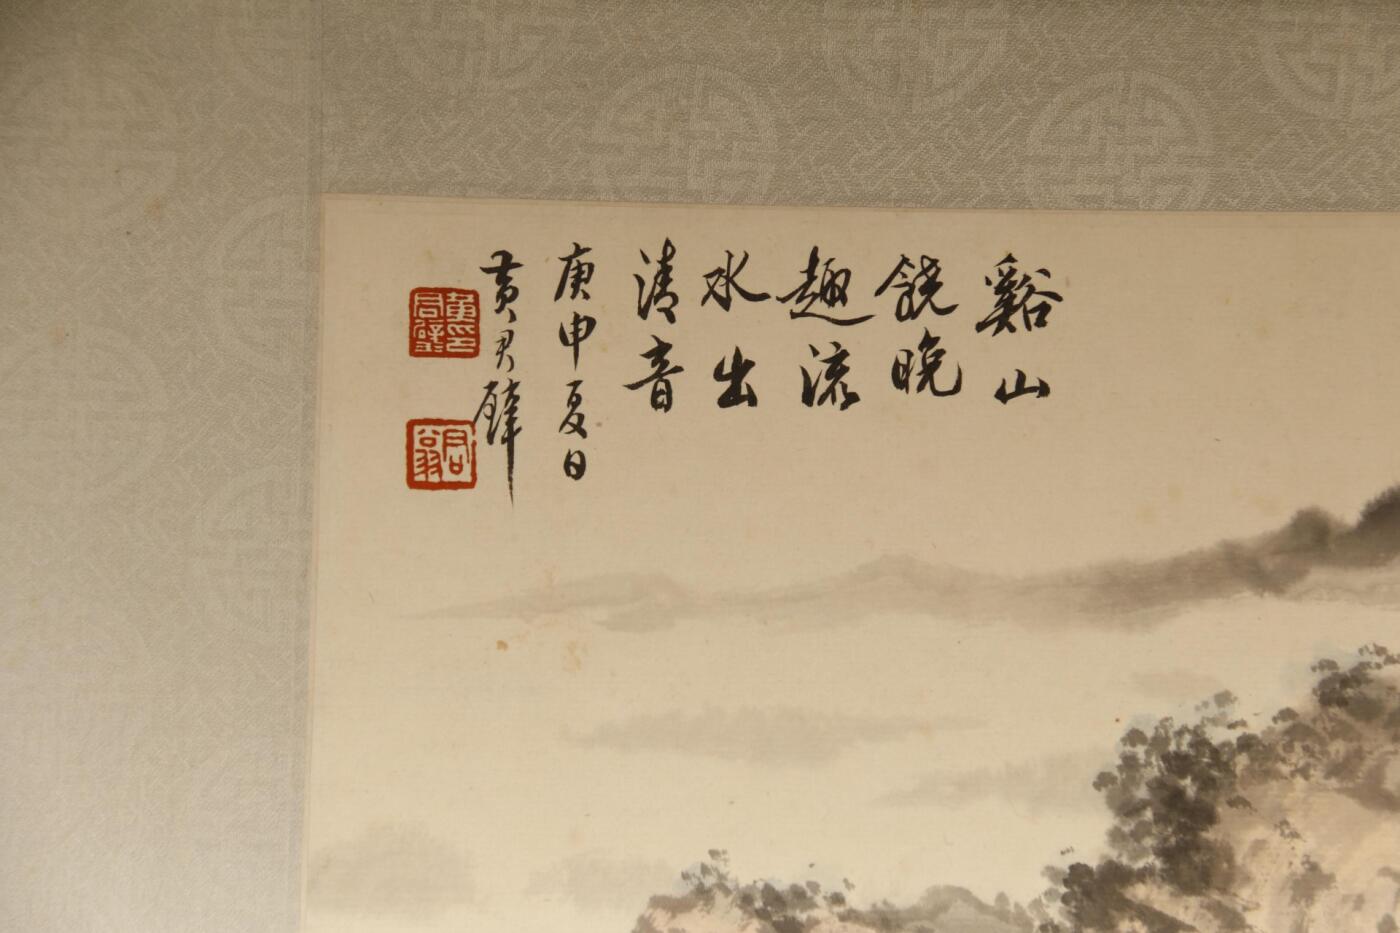 谿山
饒晚
趣流
水出
清音
庚申夏日
黄君璧
黄君璧印
君翁